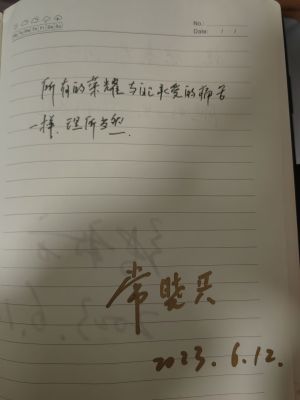 No.:
Date: / /
所有的荣耀与记承受的痛苦
一样,理所当然.
常晓兵
2023.6.12.